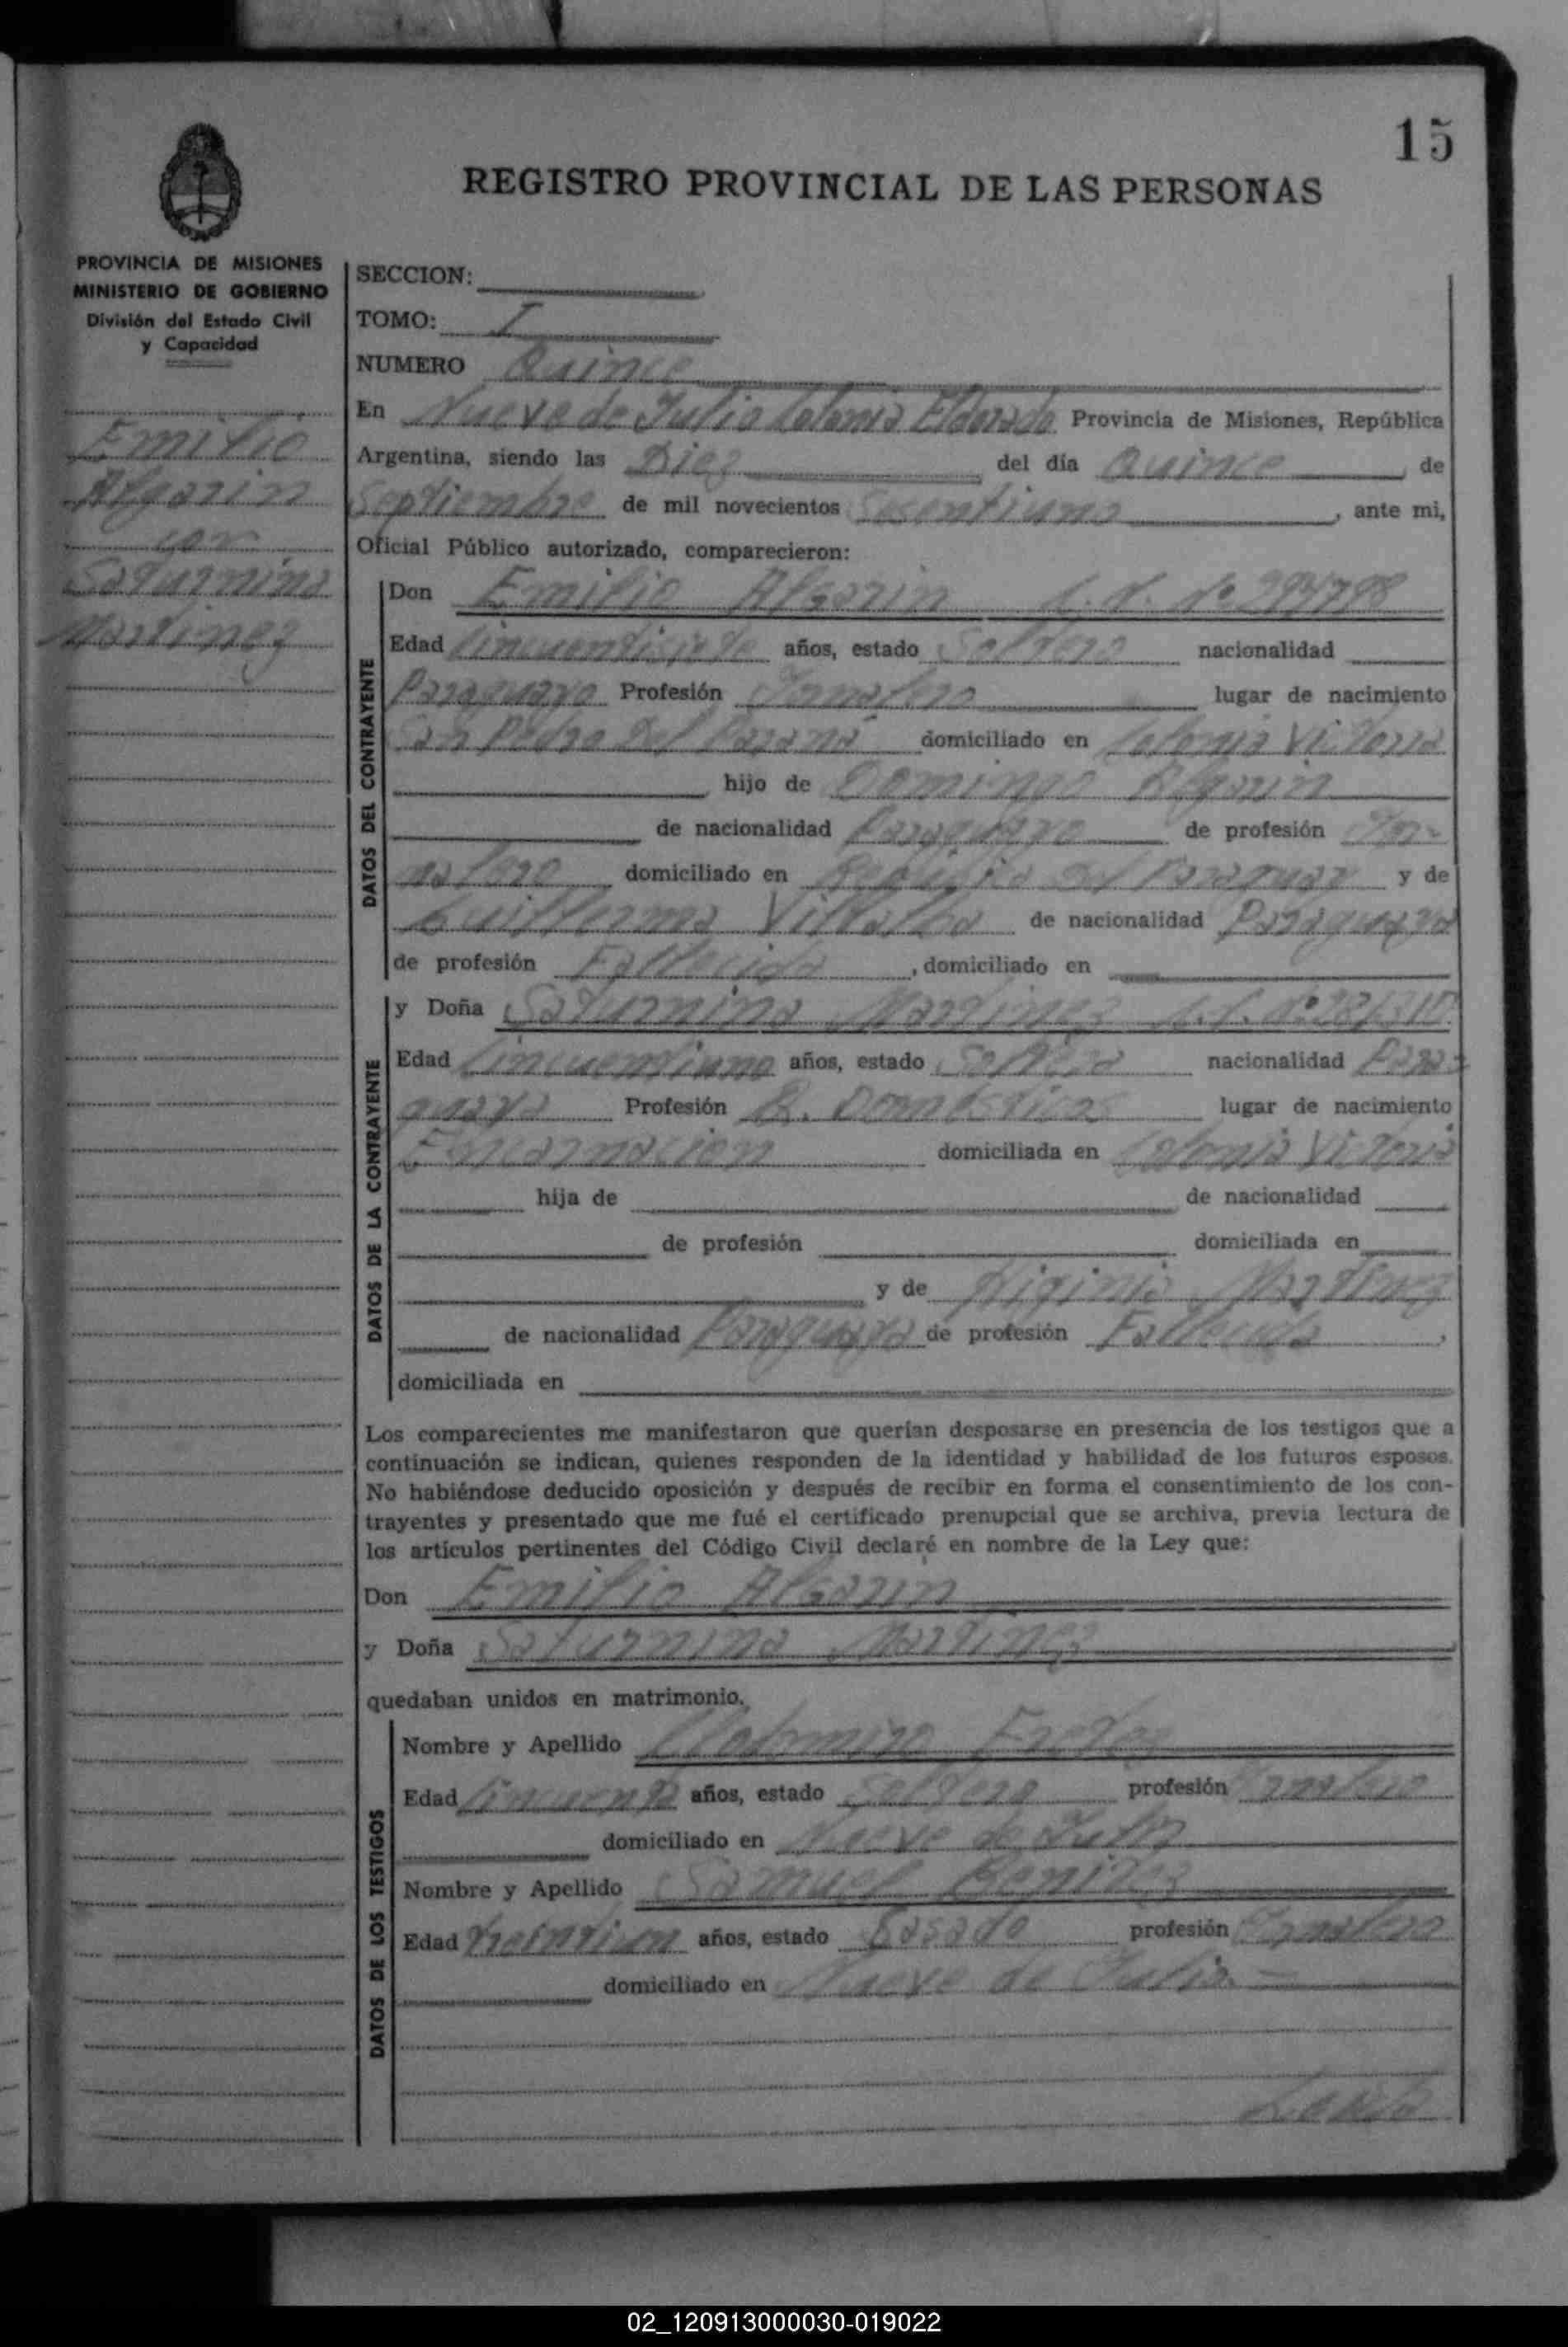 15
REGISTRO PROVINCIAL DE LAS PERSONAS
PROVINCIA DE MISIONES
MINISTERIO DE GOBIERNO
División del Estado Civil
y Capacidad
Emilio
Algarin
con
Saturnina
Martinez
SECCION:
TOMO: I
NUMERO Quince
En Nueve de Julio Colonia Eldorado Provincia de Misiones, República
Argentina, siendo las Diez del día Quince de
Septiembre de mil novecientos Sesentiuno, ante mi,
Oficial Público autorizado, comparecieron:
DATOS DEL CONTRAYENTE
Don Emilio Algarin
Edad Cincuentisiete años, estado Soltero nacionalidad
Paraguayo Profesión Jornalero lugar de nacimiento
San Pedro Del Parana domiciliado en Colonia Victoria
hijo de Domingo Algarin
de nacionalidad Paraguayo de profesión Jor-
nalero domiciliado en Republica Del Paraguay y de
Guillerma Villalba de nacionalidad Paraguaya
de profesión Fallecida, domiciliado en
DATOS DE LA CONTRAYENTE
y Doña Saturnina Martinez
Edad Cincuentiuno años, estado Soltera nacionalidad Para-
guaya Profesión Q. Domesticos lugar de nacimiento
Encarnacion domiciliada en Colonia Victoria
hija de de nacionalidad
de profesión domiciliada en
y de Higinia Martinez
de nacionalidad Paraguaya de profesión Fallecida,
domiciliada en
Los comparecientes me manifestaron que querían desposarse en presencia de los testigos que a
continuación se indican, quienes responden de la identidad y habilidad de los futuros esposos.
No habiéndose deducido oposición y después de recibir en forma el consentimiento de los con-
trayentes y presentado que me fué el certificado prenupcial que se archiva, previa lectura de
los artículos pertinentes del Código Civil declaré en nombre de la Ley que:
Don Emilio Algarin
y Doña Saturnina Martinez
quedaban unidos en matrimonio.
DATOS DE LOS TESTIGOS
Nombre y Apellido Clodomiro
Edad Cincuenta años, estado Soltero profesión Jornalero
domiciliado en Nueve de Julio
Nombre y Apellido Samuel Benitez
Edad Treintiun años, estado Casado profesión Jornalero
domiciliado en Nueve de Julio.-
02_120913000030-019022